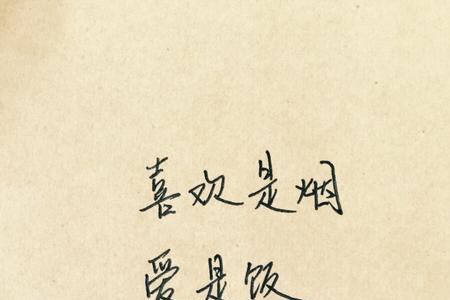 喜欢是烟
爱是饭